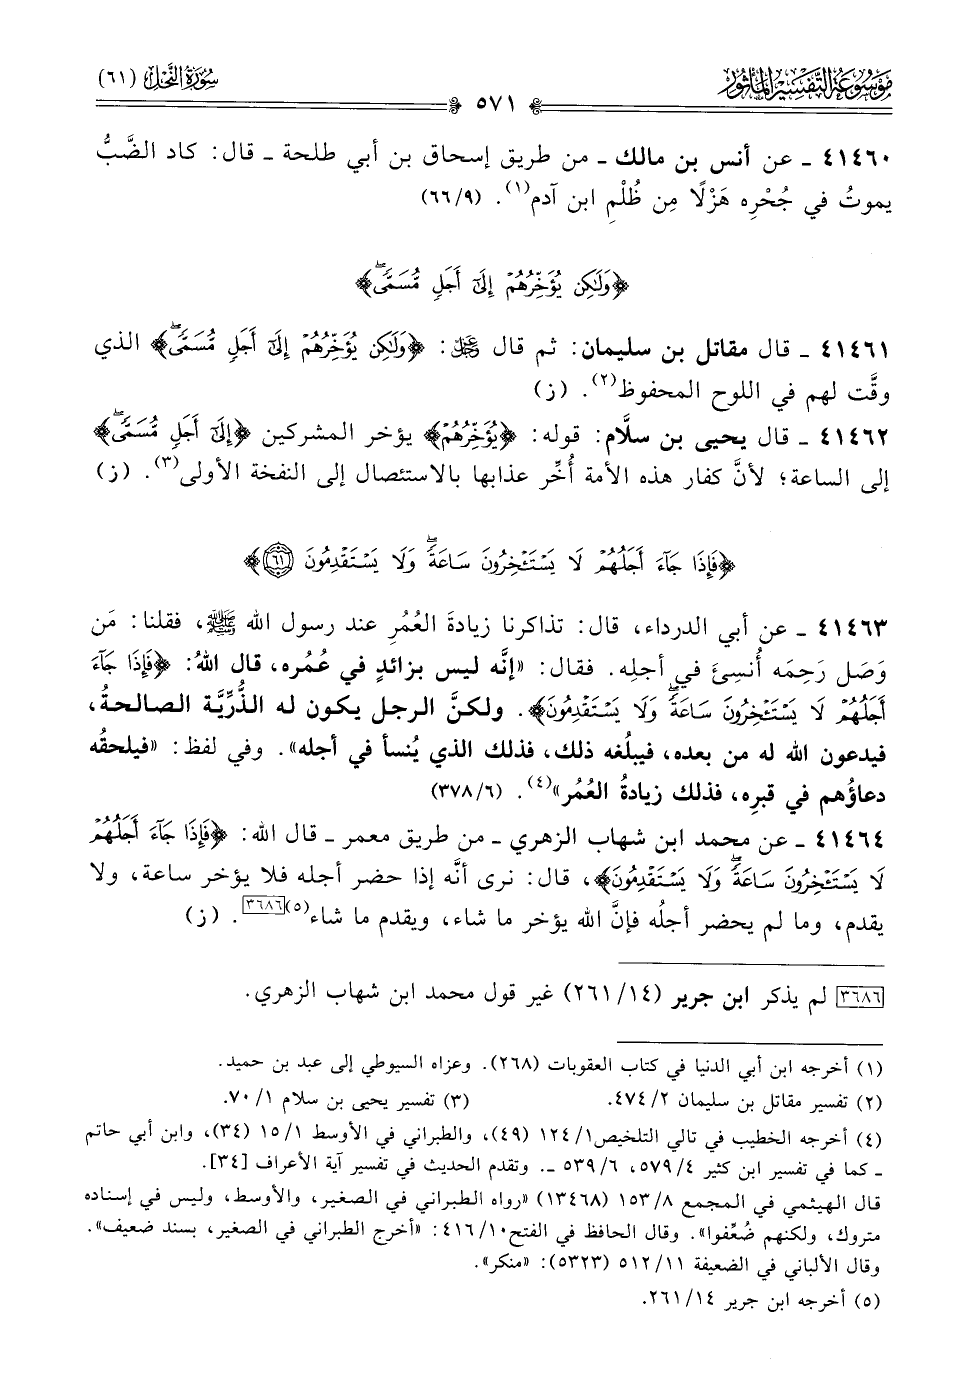 مَوْسُوعَةُ التَّفْسِيْرِ المَأْثُور
سُورَةُ النَّحْلِ (٦١)
٥٧١
٤١٤٦٠ ـ عن أنس بن مالك ـ من طريق إسحاق بن أبي طلحة ـ قال: كاد الضَّبُّ
يموتُ في جُحْرِه هَزْلًا مِن ظُلْمِ ابن آدم(١). (٩/ ٦٦)
﴿وَلَٰكِن يُؤَخِّرُهُمْ إِلَىٰٓ أَجَلٍ مُّسَمًّىۖ﴾
٤١٤٦١ ـ قال مقاتل بن سليمان: ثم قال ﷿: ﴿وَلَٰكِن يُؤَخِّرُهُمْ إِلَىٰٓ أَجَلٍ مُّسَمًّىۖ﴾ الذي
وقَّت لهم في اللوح المحفوظ(٢). (ز)
٤١٤٦٢ ـ قال يحيى بن سلَّام: قوله: ﴿يُؤَخِّرُهُمْ﴾ يؤخر المشركين ﴿إِلَىٰٓ أَجَلٍ مُّسَمًّىۖ﴾
إلى الساعة؛ لأنَّ كفار هذه الأمة أُخِّر عذابها بالاستئصال إلى النفخة الأولى(٣). (ز)
﴿فَإِذَا جَآءَ أَجَلُهُمْ لَا يَسْتَـْٔخِرُونَ سَاعَةًۖ وَلَا يَسْتَقْدِمُونَ ٦١﴾
٤١٤٦٣ ـ عن أبي الدرداء، قال: تذاكرنا زيادةَ العُمُرِ عند رسول الله ﷺ، فقلنا: مَن
وَصَل رَحِمَه أُنسِئَ في أجلِه. فقال: «إنَّه ليس بزائدٍ في عُمُره، قال اللهُ: ﴿فَإِذَا جَآءَ
أَجَلُهُمْ لَا يَسْتَـْٔخِرُونَ سَاعَةًۖ وَلَا يَسْتَقْدِمُونَ﴾. ولكنَّ الرجل يكون له الذُّرِّيَّة الصالحةُ،
فيدعون الله له من بعده، فيبلُغه ذلك، فذلك الذي يُنسأ في أجله». وفي لفظ: «فيلحقُه
دعاؤُهم في قبرِه، فذلك زيادةُ العُمُر»(٤). (٦/ ٣٧٨)
٤١٤٦٤ ـ عن محمد ابن شهاب الزهري ـ من طريق معمر ـ قال الله: ﴿فَإِذَا جَآءَ أَجَلُهُمْ
لَا يَسْتَـْٔخِرُونَ سَاعَةًۖ وَلَا يَسْتَقْدِمُونَ﴾، قال: نرى أنَّه إذا حضر أجله فلا يؤخر ساعة، ولا
يقدم، وما لم يحضر أجلُه فإنَّ الله يؤخر ما شاء، ويقدم ما شاء(٥)[٣٦٨٦]. (ز)
[٣٦٨٦] لم يذكر ابن جرير (١٤/ ٢٦١) غير قول محمد ابن شهاب الزهري.
(١) أخرجه ابن أبي الدنيا في كتاب العقوبات (٢٦٨). وعزاه السيوطي إلى عبد بن حميد.
(٢) تفسير مقاتل بن سليمان ٢/ ٤٧٤. (٣) تفسير يحيى بن سلام ١/ ٧٠.
(٤) أخرجه الخطيب في تالي التلخيص١/ ١٢٤ (٤٩)، والطبراني في الأوسط ١/ ١٥ (٣٤)، وابن أبي حاتم
ـ كما في تفسير ابن كثير ٤/ ٥٧٩، ٦/ ٥٣٩ ـ. وتقدم الحديث في تفسير آية الأعراف [٣٤].
قال الهيثمي في المجمع ٨/ ١٥٣ (١٣٤٦٨) «رواه الطبراني في الصغير، والأوسط، وليس في إسناده
متروك، ولكنهم ضُعِّفوا». وقال الحافظ في الفتح١٠/ ٤١٦: «أخرج الطبراني في الصغير، بسند ضعيف».
وقال الألباني في الضعيفة ١١/ ٥١٢ (٥٣٢٣): «منكر».
(٥) أخرجه ابن جرير ١٤/ ٢٦١.